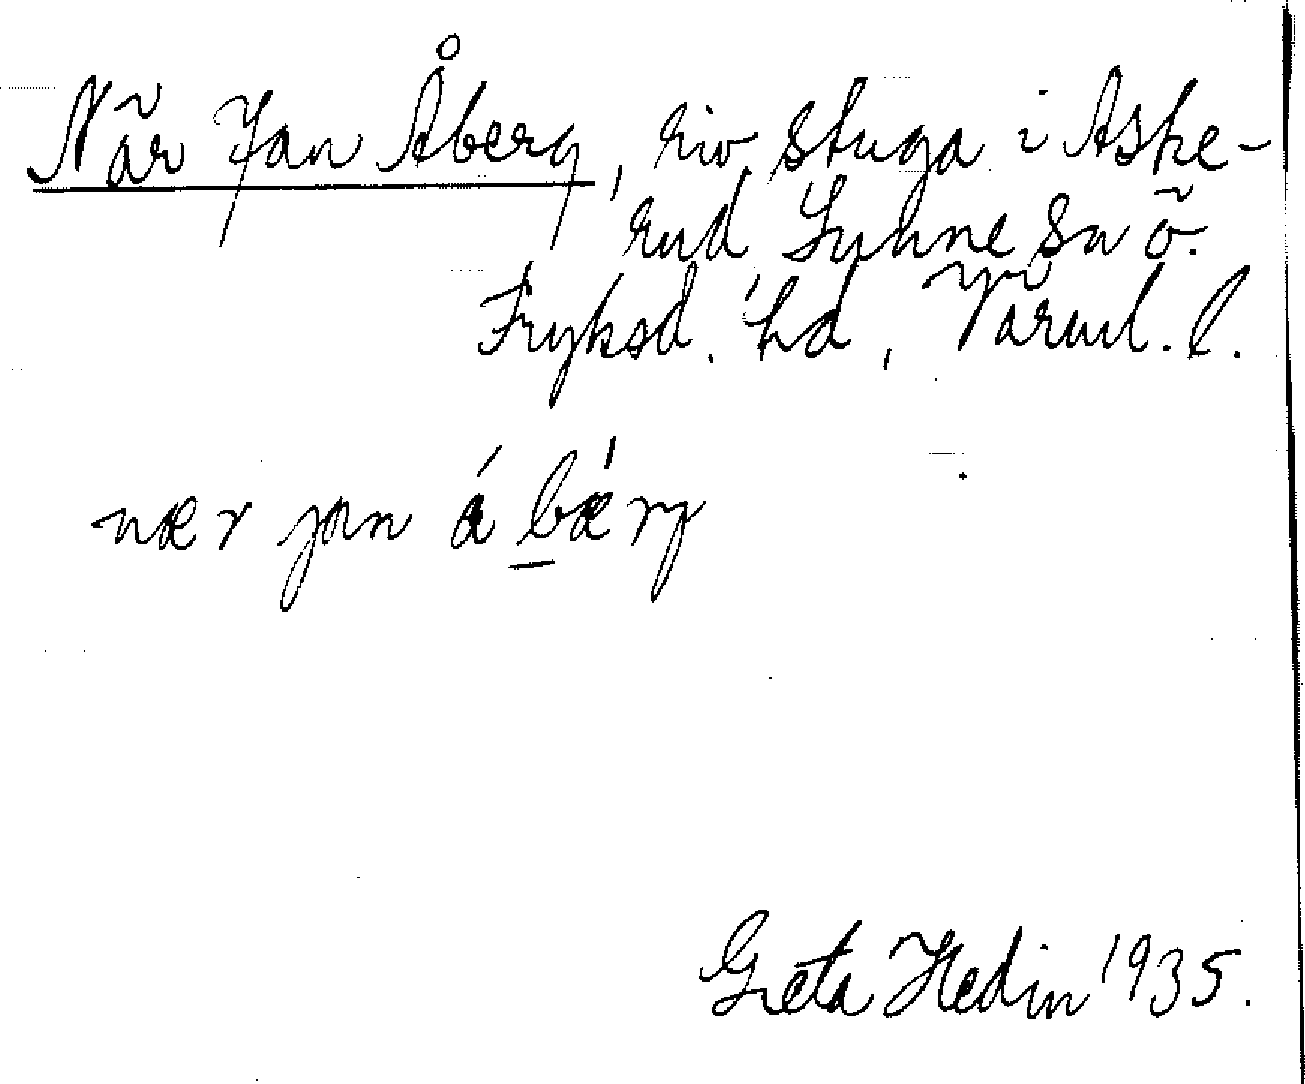 När Jan Åberg, riv. stuga i Aske-
rud, Lysvik sn ö.
Fryksd. hd, Värml. l.
nær jan á bǽrg
Greta Hedin 1935.